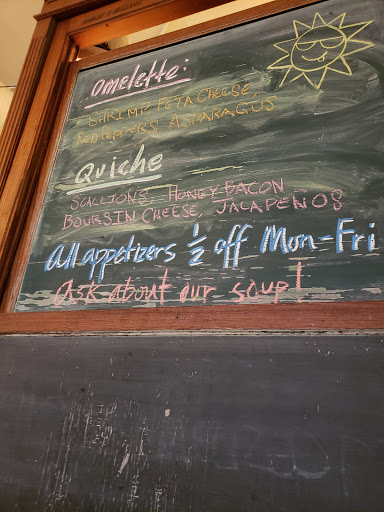 Omelette:
SHRIMP, FETA CHEESE,
RED PEPPERS, ASPARAGUS
QUiche
SCALLIONS, HONEY BACON
BOURSIN CHEESE, JALAPENOS
All appetizers 1/2 off Mon-Fri
Ask about our soup!